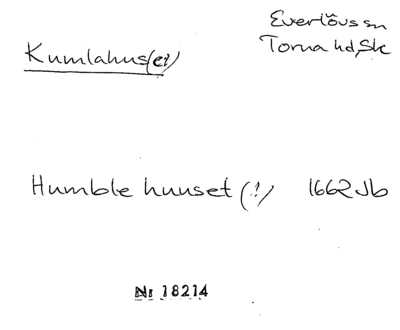 Everlövs sn
Torna hd, Sk
Kumlahus(et)
Humble huuset (!) 1662 Jb
Nr 18214